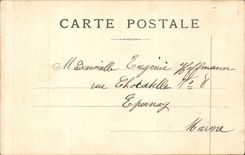 CARTE POSTALE
Mademoiselle Eugénie Hoffmann
rue Chocatelle N° 8
Epernay
Marne